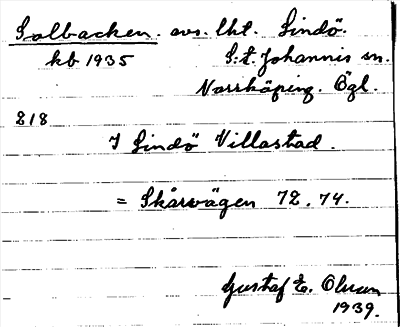 Solbacken. avs. lht. Lindö.
kb 1935 S:t Johannis sn.
Norrköping. Ögl.
818
I Lindö Villastad.
= Skårvägen 72, 74.
Gustaf E. Olsson
1939.